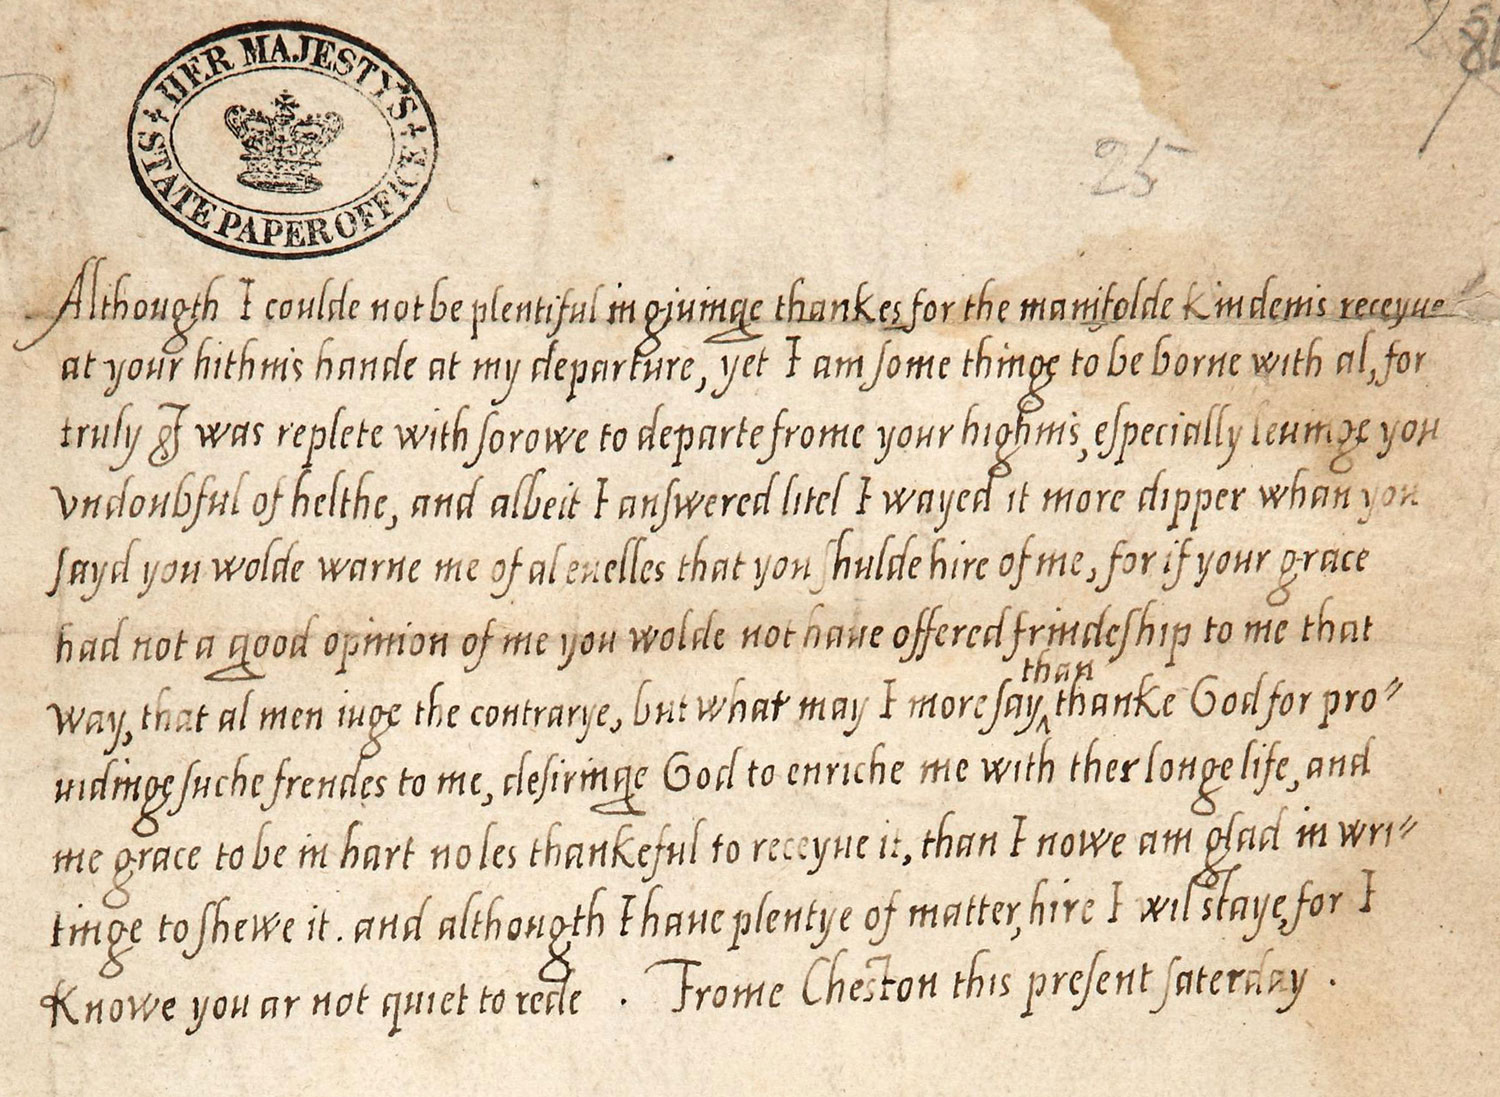 HER MAJESTY'S STATE PAPER OFFICE
25
Although I coulde not be plentiful in giuinge thankes for the manifolde kindenis receyue
at your hithnis hande at my departure, yet I am some thinge to be borne with al, for
truly I was replete with sorowe to departe frome your highnis, especially leuinge you
vndoubful of helthe, and albeit I answered litel I wayed it more dipper whan you
sayd you wolde warne me of al euelles that you shulde hire of me, for if your grace
had not a good opinion of me you wolde not haue offered frindeship to me that
way, that al men iuge the contrarye, but what may I more say than thanke God for pro"
uidinge suche frendes to me, desiringe God to enriche me with ther longe life, and
me grace to be in hart no les thankeful to receyue it, than I nowe am glad in wri"
tinge to shewe it. and although I haue plentye of matter, hire I wil staye, for I
Knowe you ar not quiet to rede . Frome Cheston this present saterday .